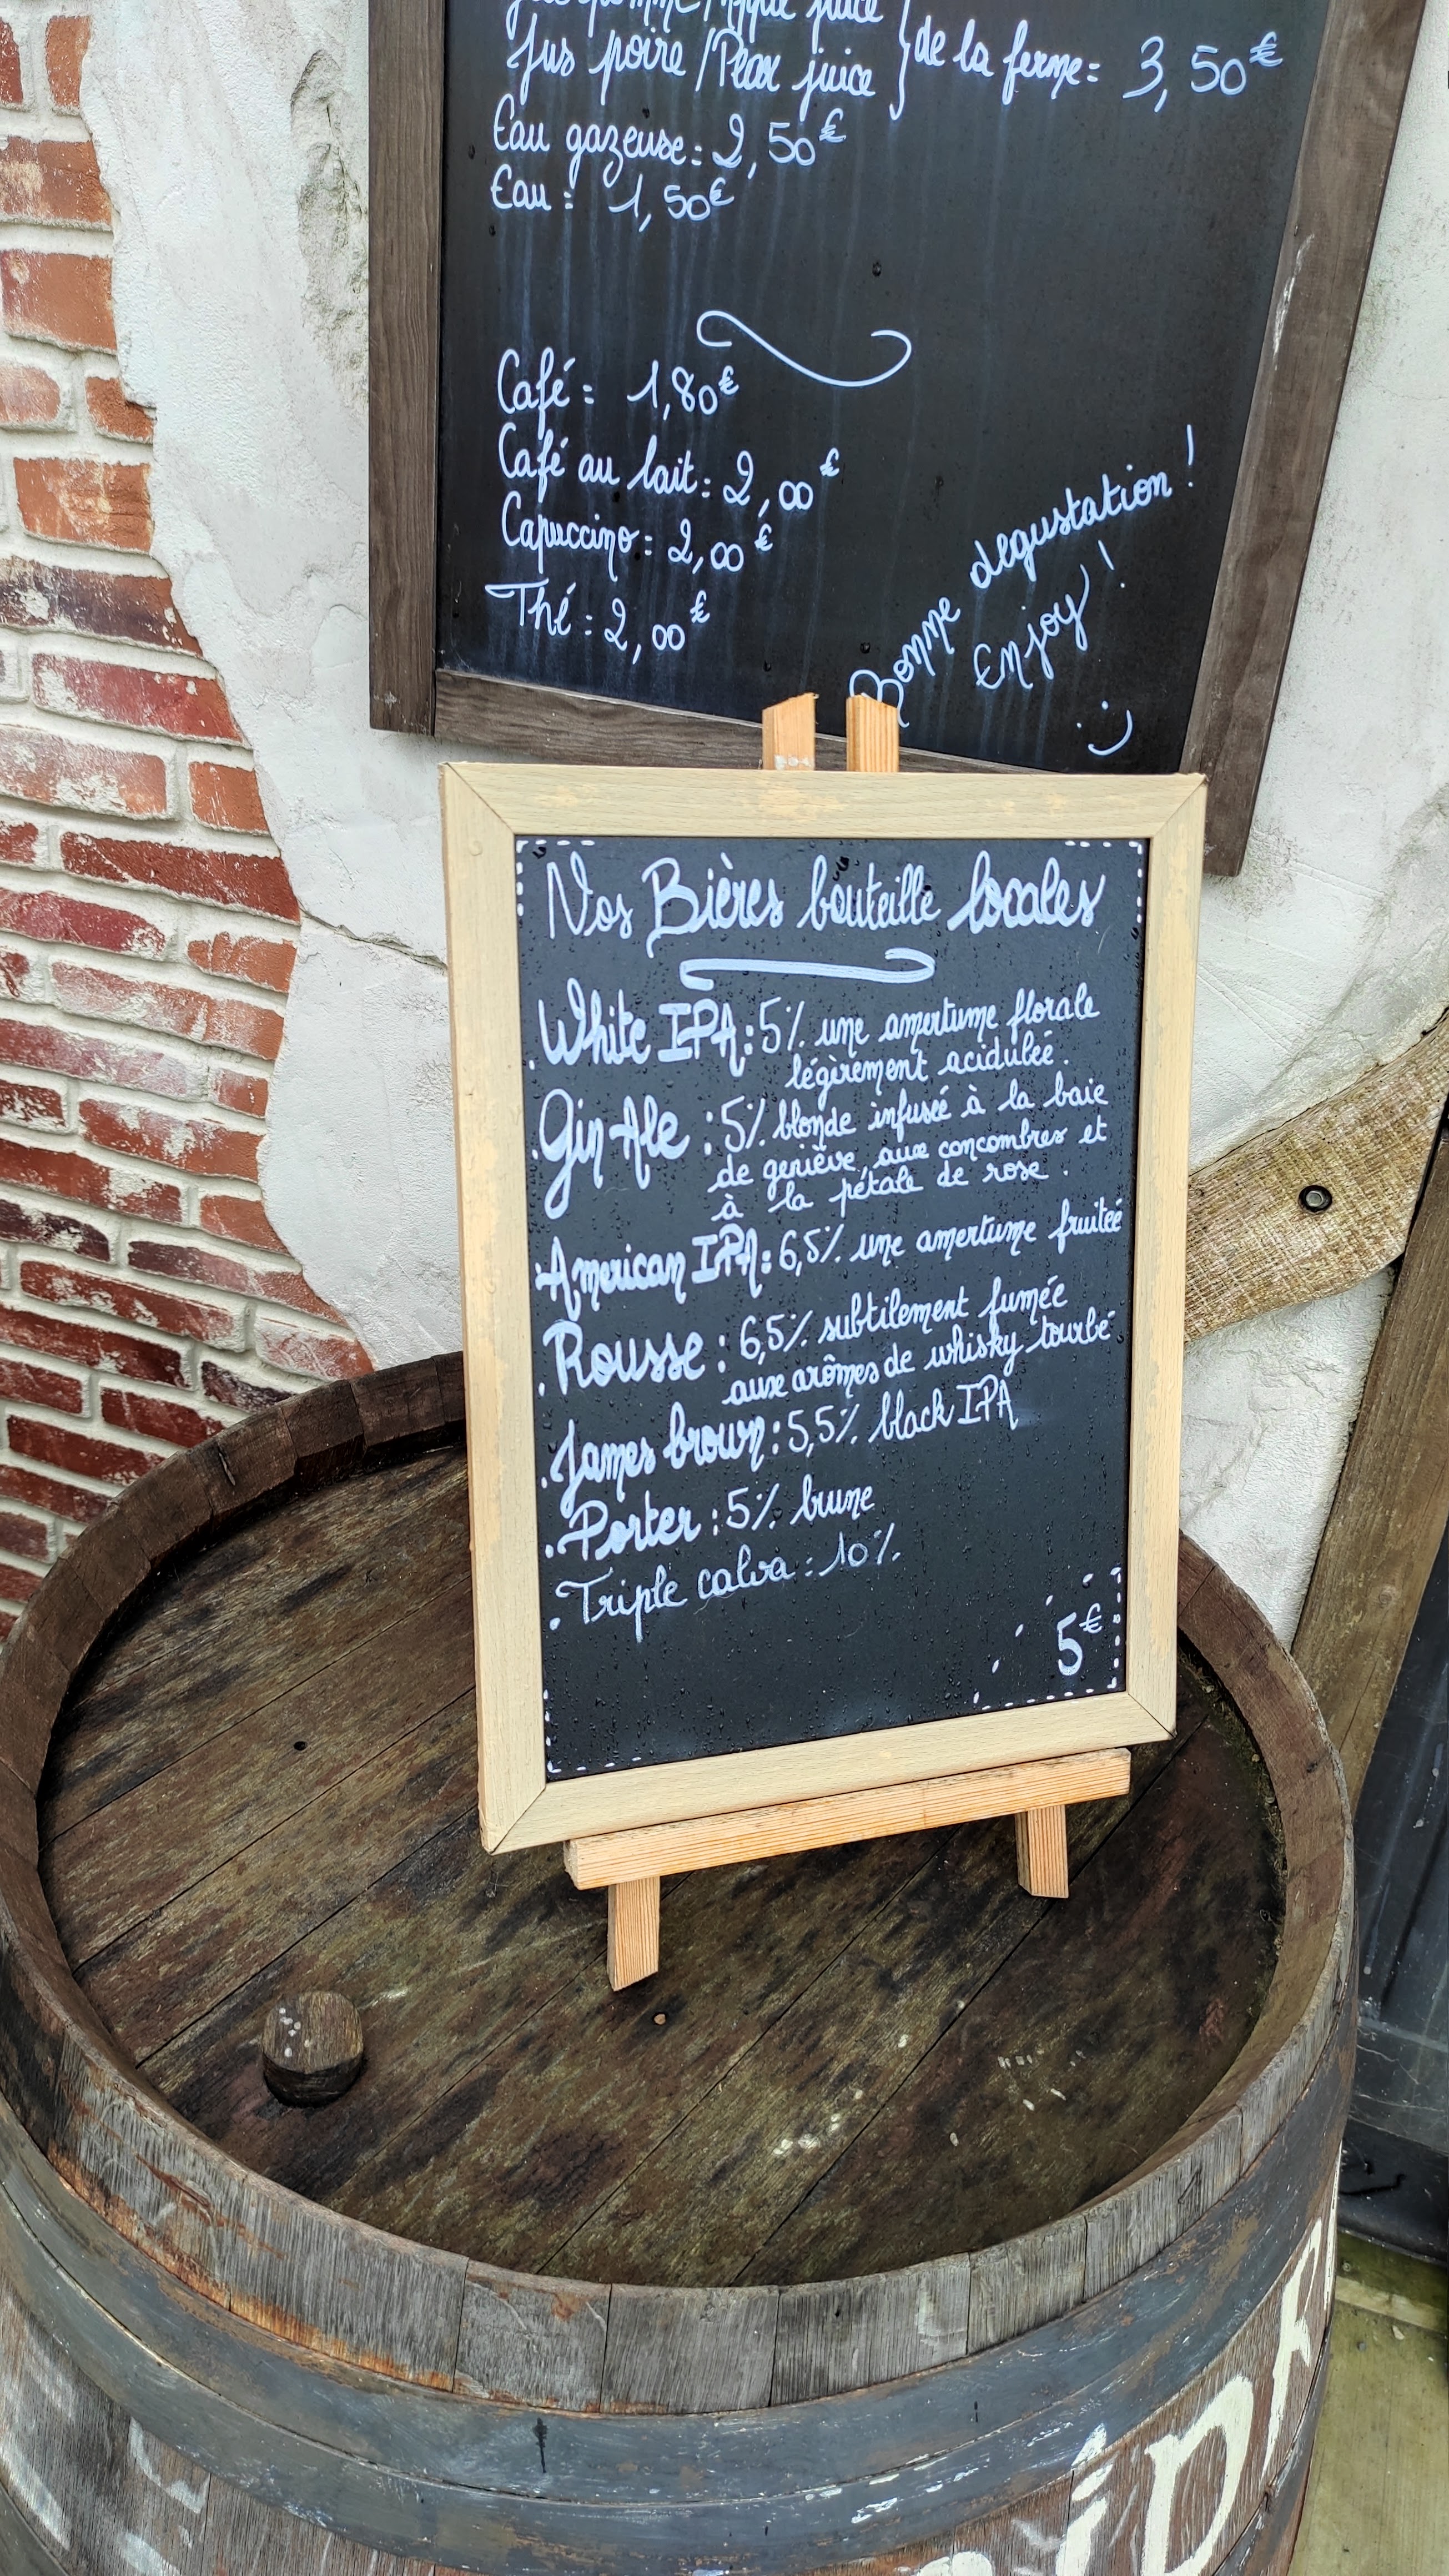 Jus pomme / Apple juice
Jus poire / Pear juice } de la ferme = 3,50€
Eau gazeuse = 2,50€
Eau = 1,50€
Café = 1,80€
Café au lait = 2,00€
Capuccino = 2,00€
Thé = 2,00€
Bonne degustation !
Enjoy !
:)
Nos Bières bouteille locales
. White IPA : 5% une amertume florale
légèrement acidulée .
. Gin Ale : 5% blonde infusée à la baie
de genièvre, aux concombres et
à la pétale de rose .
. American IPA : 6,5% une amertume fruitée
. Rousse : 6,5% subtilement fumée
aux arômes de whisky tourbé
. James brown : 5,5% black IPA
. Porter : 5% brune
. Triple calva : 10%
5€